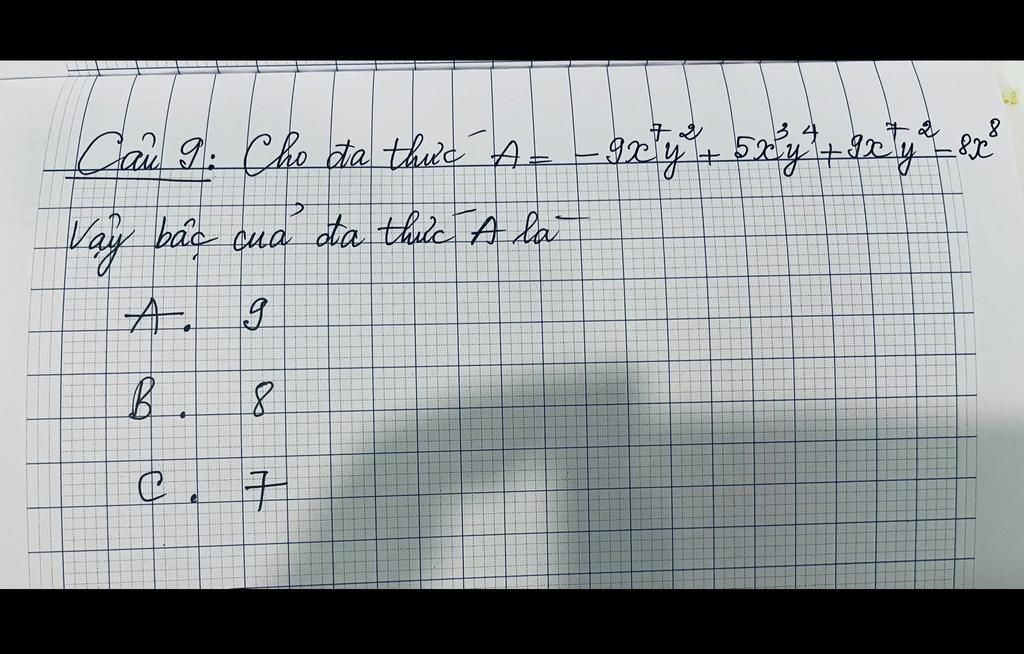 Câu 9: Cho đa thức A = -9x⁷y² + 5x³y⁴ + 9x⁷y² - 8x⁸
Vậy bậc của đa thức A là
A. 9
B. 8
C. 7